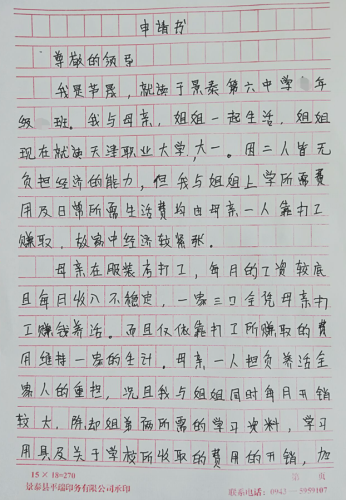 申请书
尊敬的领导
我是芦晨，就读于景泰第六中学 年
级 班。我与母亲，姐姐一起生活，姐姐
现在就读天津职业大学，大一。因二人皆无
负担经济的能力，但我与姐姐上学所需费
用及日常所需生活费均由母亲一人靠打工
赚取，故家中经济较紧张。
母亲在服装店打工，每月的工资较底
且每月收入不稳定，一家三口全凭母亲打
工赚钱养活。而且仅依靠打工所赚取的费
用维持一家的生计。母亲一人担负养活全
家人的重担，况且我与姐姐同时每月开销
较大，除却姐弟俩所需的学习资料，学习
用具及关于学校所收取的费用的开销，加
15×18=270 第 页
景泰县平瑞印务有限公司承印 联系电话：0943—5959107